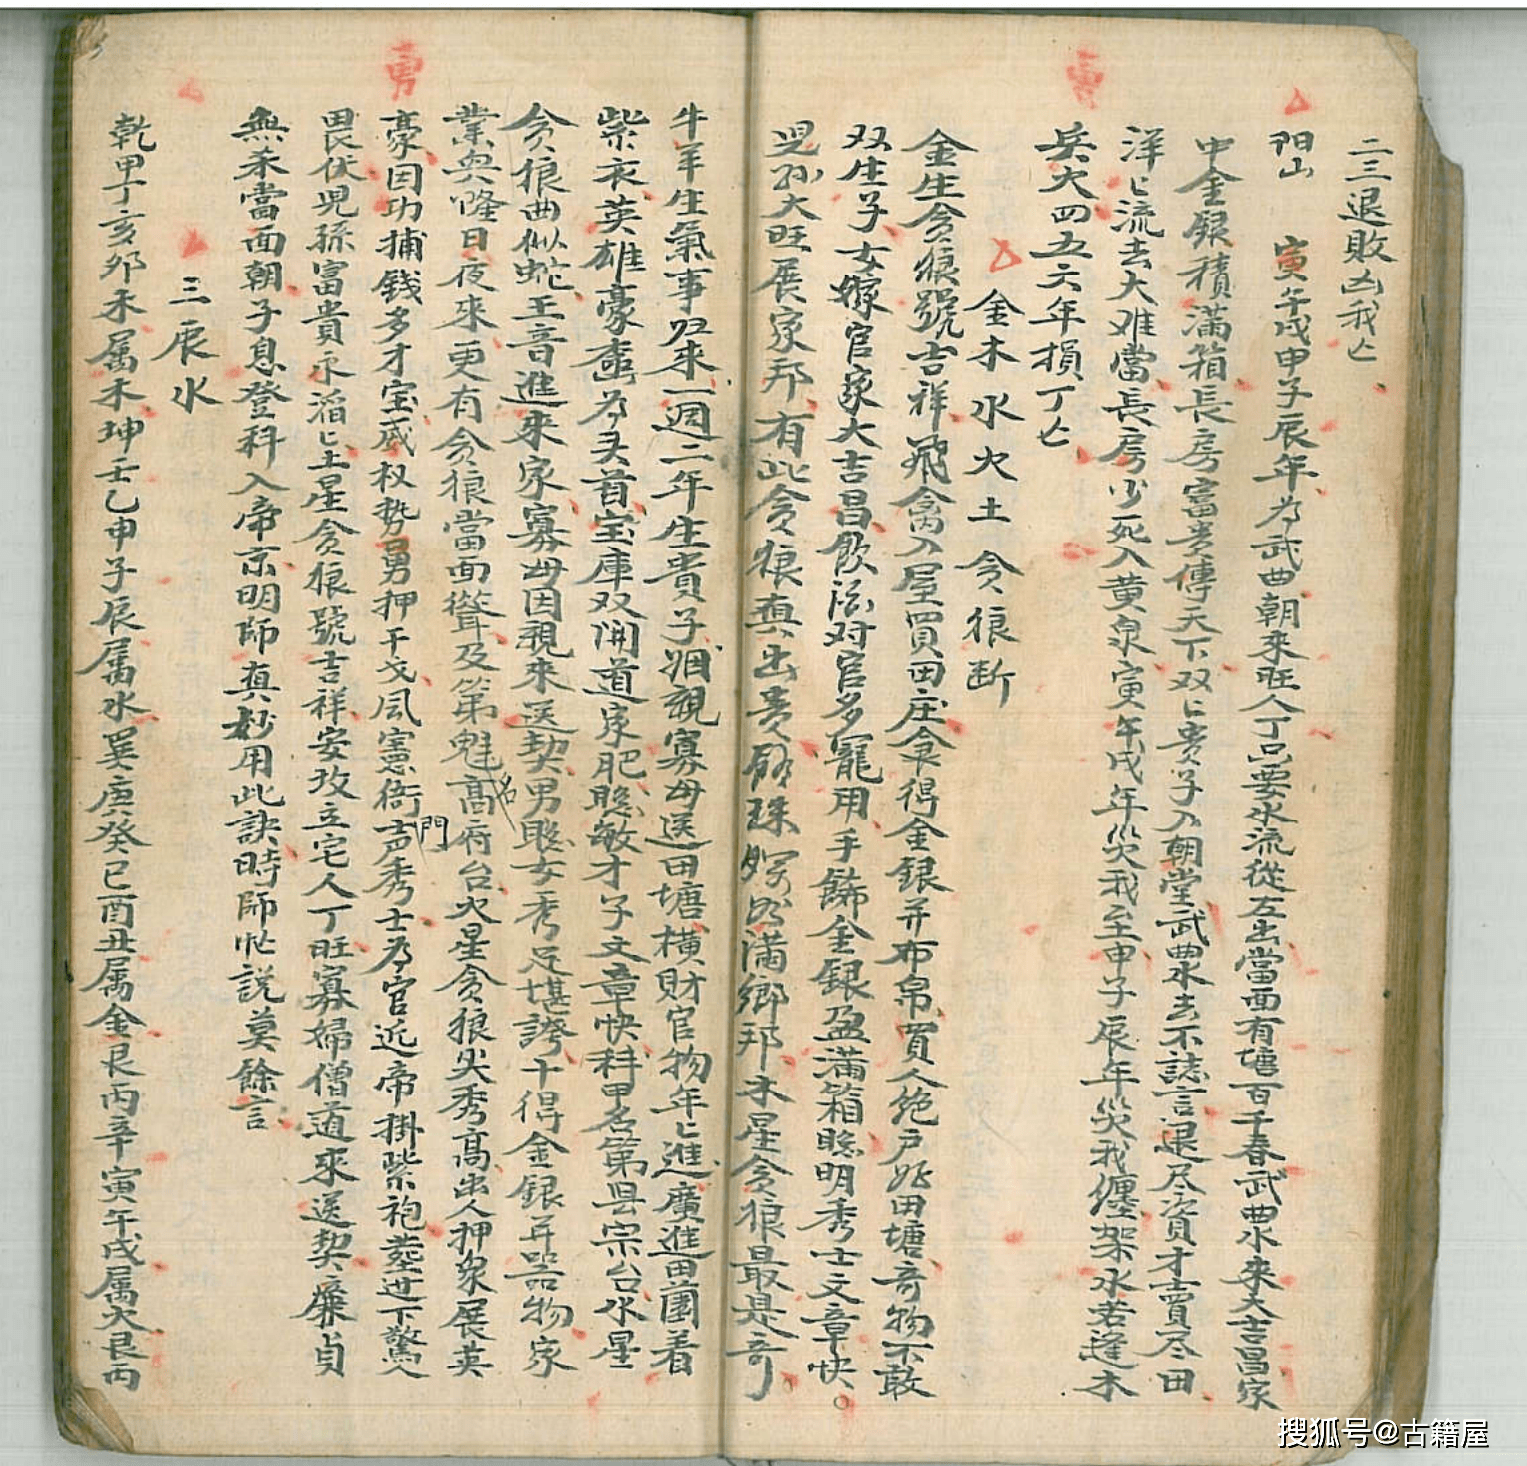 二三退敗凶我亡
門山 寅午戌申子辰年为武曲朝來旺人丁只要水流從左出當面有塘百千春武曲水來大吉昌家
中金銀積滿箱長房富贵傳天下双〻贵子入朝堂武曲水去不誌言退尽資才賣尽田
洋〻流去大难當長房少死入黄泉寅午戌年災我至申子辰年災我纏架水若逢木
兵火四五六年損丁亡
金木水火土贪狼断
金生贪狼號吉祥飛禽入屋買田庄拿得金銀并布帛買人绝户兆田塘奇物不敢
双生子女嫁官家大吉昌飲法对官多寵用手飾金銀盈满箱聪明秀士文章快
児孙大旺展家邦有此贪狼真出贵砂珠照滿鄉邦木星贪狼最是奇
牛羊生氣事归來一週二年生貴子姻親寡母送田塘横財官物年〻進廣進田園着
紫衣英雄豪杰为头首宝庫双開道家肥聪敏才子文章快科甲名第县宗台水星
贪狼曲似蛇王音進來家寡母因親來送契男聪女秀足堪誇十得金銀并器物家
業興隆日夜來更有贪狼當面聳及第魁名高府台火星贪狼尖秀高出人押眾展英
豪因功捕錢多才宝威权势勇押干戈風憲衙門声秀士为官近帝掛紫袍莚世下驚人
畏伏児孫富貴永滔〻土星贪狼號吉祥安坟立宅人丁旺寡婦僧道來送契廉貞
無来當面朝子息登科入帝京明師真妙用此訣時師忙説莫餘言
三辰水
乾甲丁亥卯未属木坤壬乙申子辰属水巽庚癸巳酉丑属金艮丙辛寅午戌属火艮丙
搜狐号@古籍屋